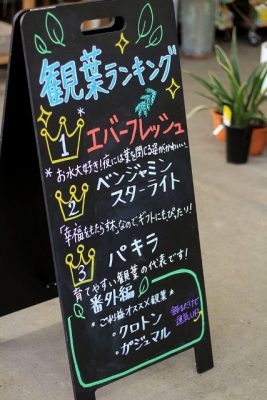 観葉ランキング
1 エバーフレッシュ
*お水大好き!夜には葉を閉じる姿がかわいい。
2 ベンジャミン
スターライト
「幸福をもたらす木」なので、ギフトにもぴったり!
3 パキラ
育てやすい観葉の代表です!
番外編
*ご利益オススメ観葉*
・クロトン
・ガジュマル
飾るだけで
運気UP